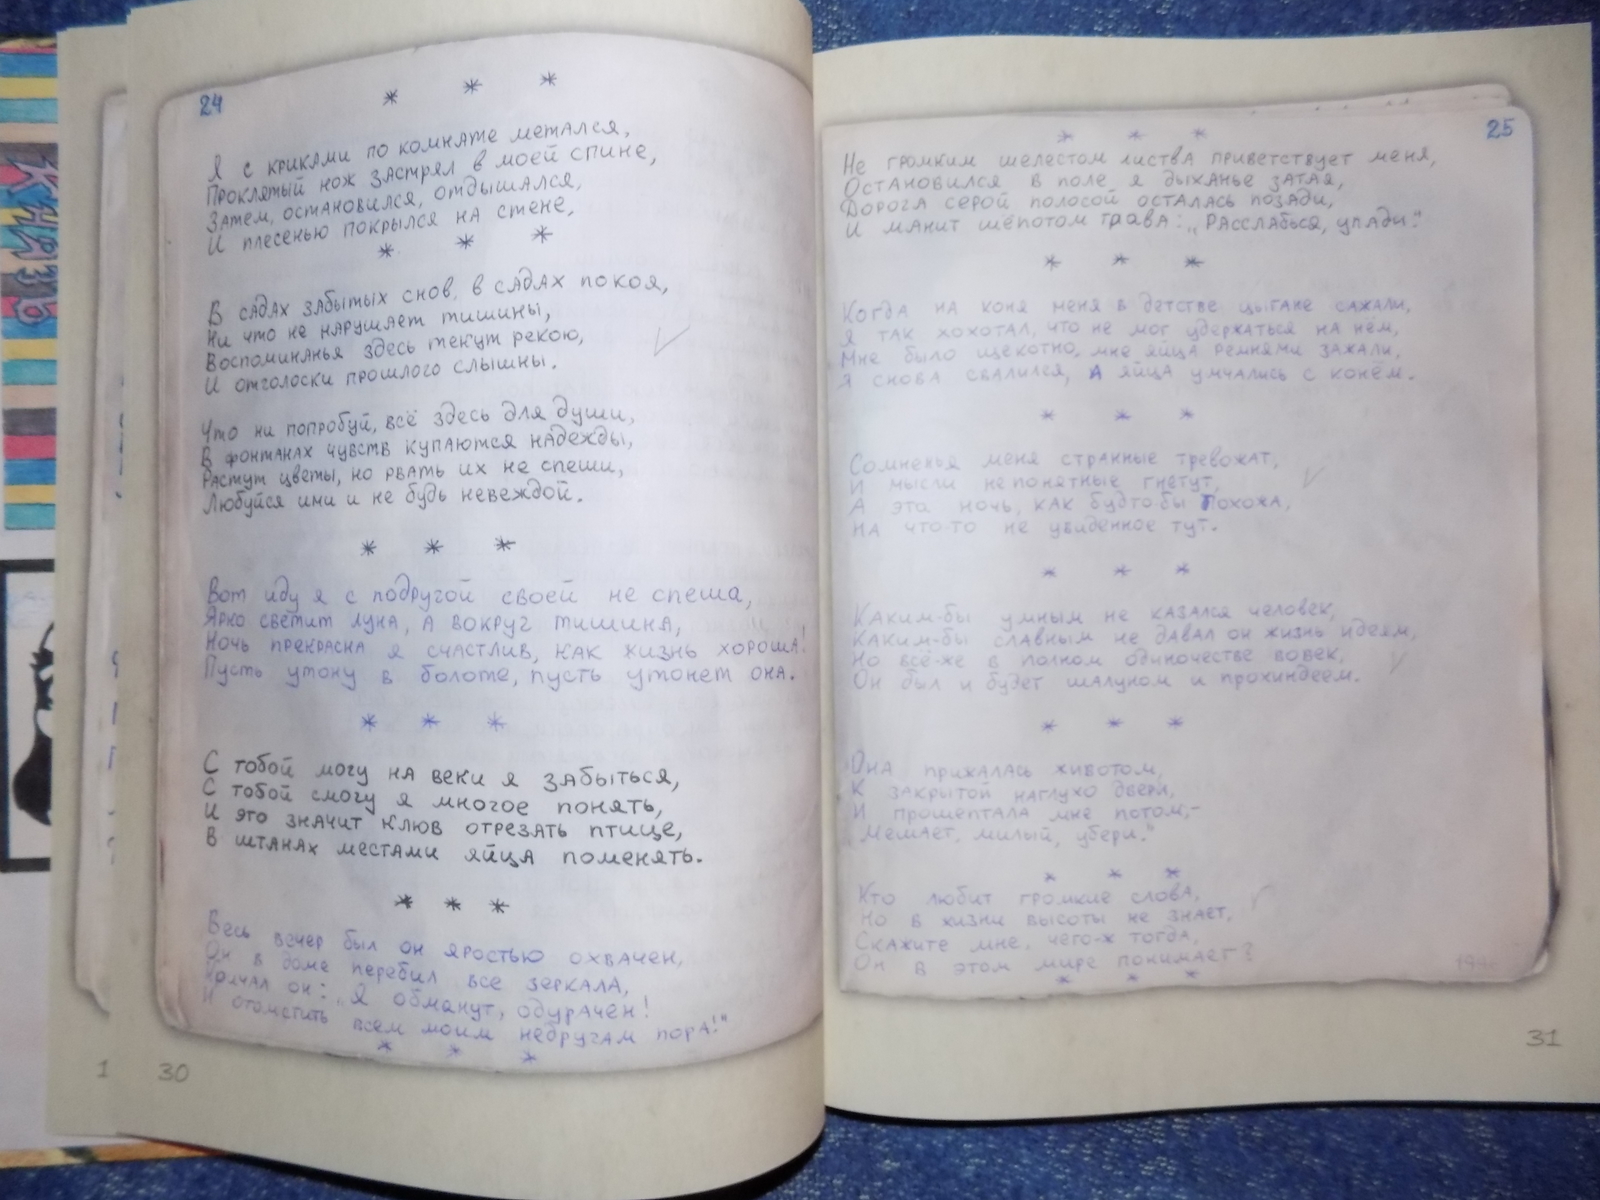 КНЯЗЬ
24
* * *
Я с криками по комнате метался,
Проклятый нож застрял в моей спине,
Затем, остановился, отдышался,
И плесенью покрылся на стене,
* * *
В садах забытых снов, в садах покоя,
Ни что не нарушает тишины,
Воспоминанья здесь текут рекою,
И отголоски прошлого слышны.
Что ни попробуй, всё здесь для души,
В фонтанах чувств купаются надежды,
Растут цветы, но рвать их не спеши,
Любуйся ими и не будь невеждой.
* * *
Вот иду я с подругой своей не спеша,
Ярко светит луна, а вокруг тишина,
Ночь прекрасна я счастлив, как жизнь хороша!
Пусть утону в болоте, пусть утонет она.
* * *
С тобой могу на веки я забыться,
С тобой смогу я многое понять,
И это значит клюв отрезать птице,
В штанах местами яйца поменять.
* * *
Весь вечер был он яростью охвачен,
Он в доме перебил все зеркала,
Кричал он: „Я обманут, одурачен!
И отомстить всем моим недругам пора!"
* * *
1
30
25
* * *
Не громким шелестом листва приветствует меня,
Остановился в поле я дыханье затая,
Дорога серой полосой осталась позади,
И манит шёпотом трава: „Расслабься, упади."
* * *
Когда на коня меня в детстве цыгане сажали,
Я так хохотал, что не мог удержаться на нём,
Мне было щекотно, мне яйца ремнями зажали,
Я снова свалился, а яйца умчались с конём.
* * *
Сомненья меня странные тревожат,
И мысли непонятные гнетут,
А эта ночь, как будто-бы похожа,
На что-то не увиденное тут.
* * *
Каким-бы умным не казался человек,
Каким-бы славным не давал он жизнь идеям,
Но всё-же в полном одиночестве вовек,
Он был и будет шалуном и прохиндеем.
* * *
Она прижалась животом,
К закрытой наглухо двери,
И прошептала мне потом,-
„Мешает, милый, убери."
* * *
Кто любит громкие слова,
Но в жизни высоты не знает,
Скажите мне, чего-ж тогда,
Он в этом мире понимает?
* * *
31